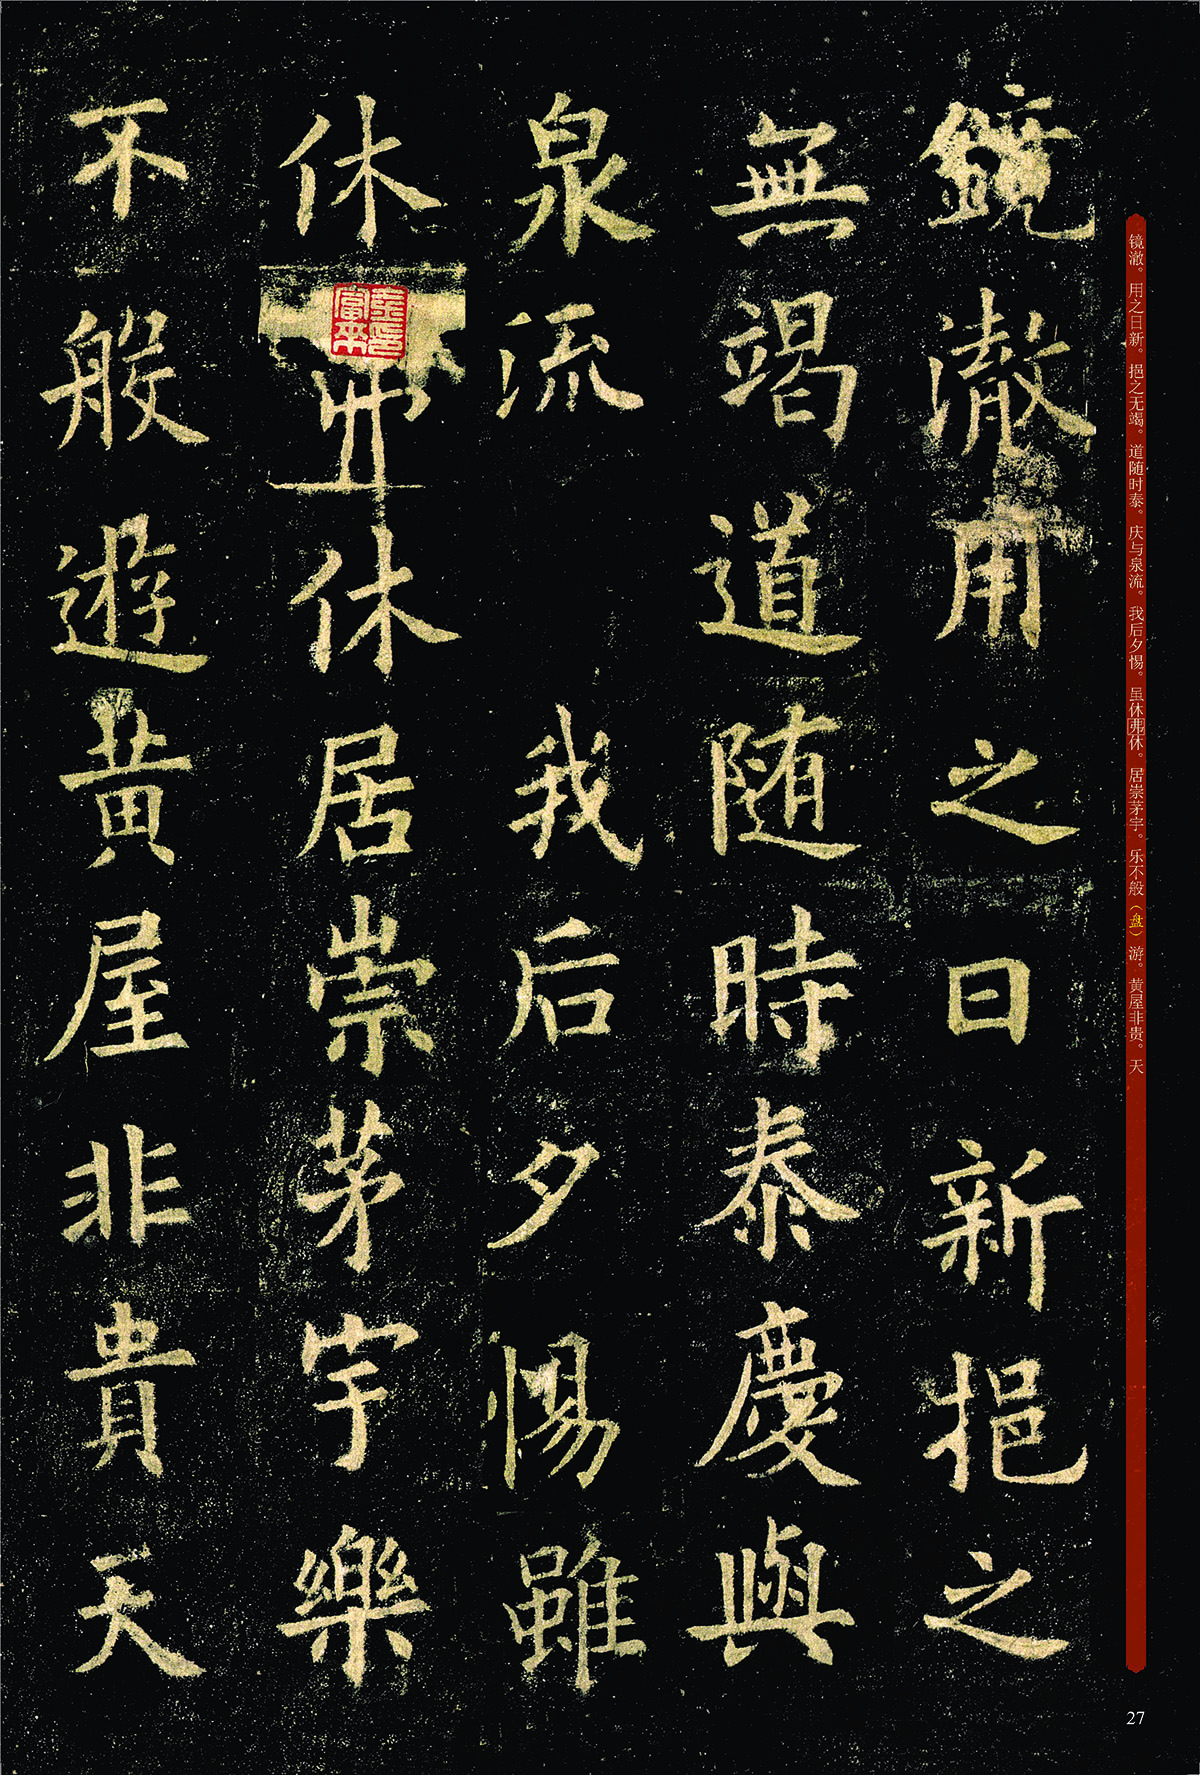 镜澈。用之日新。挹之无竭。道随时泰。庆与泉流。我后夕惕。虽休弗休。居崇茅宇。乐不般（盘）游。黄屋非贵。天
鏡澈用之日新挹之
無竭道随時泰慶與
泉流 我后夕惕雖
休休居崇茅宇樂
不般遊黄屋非貴天
27